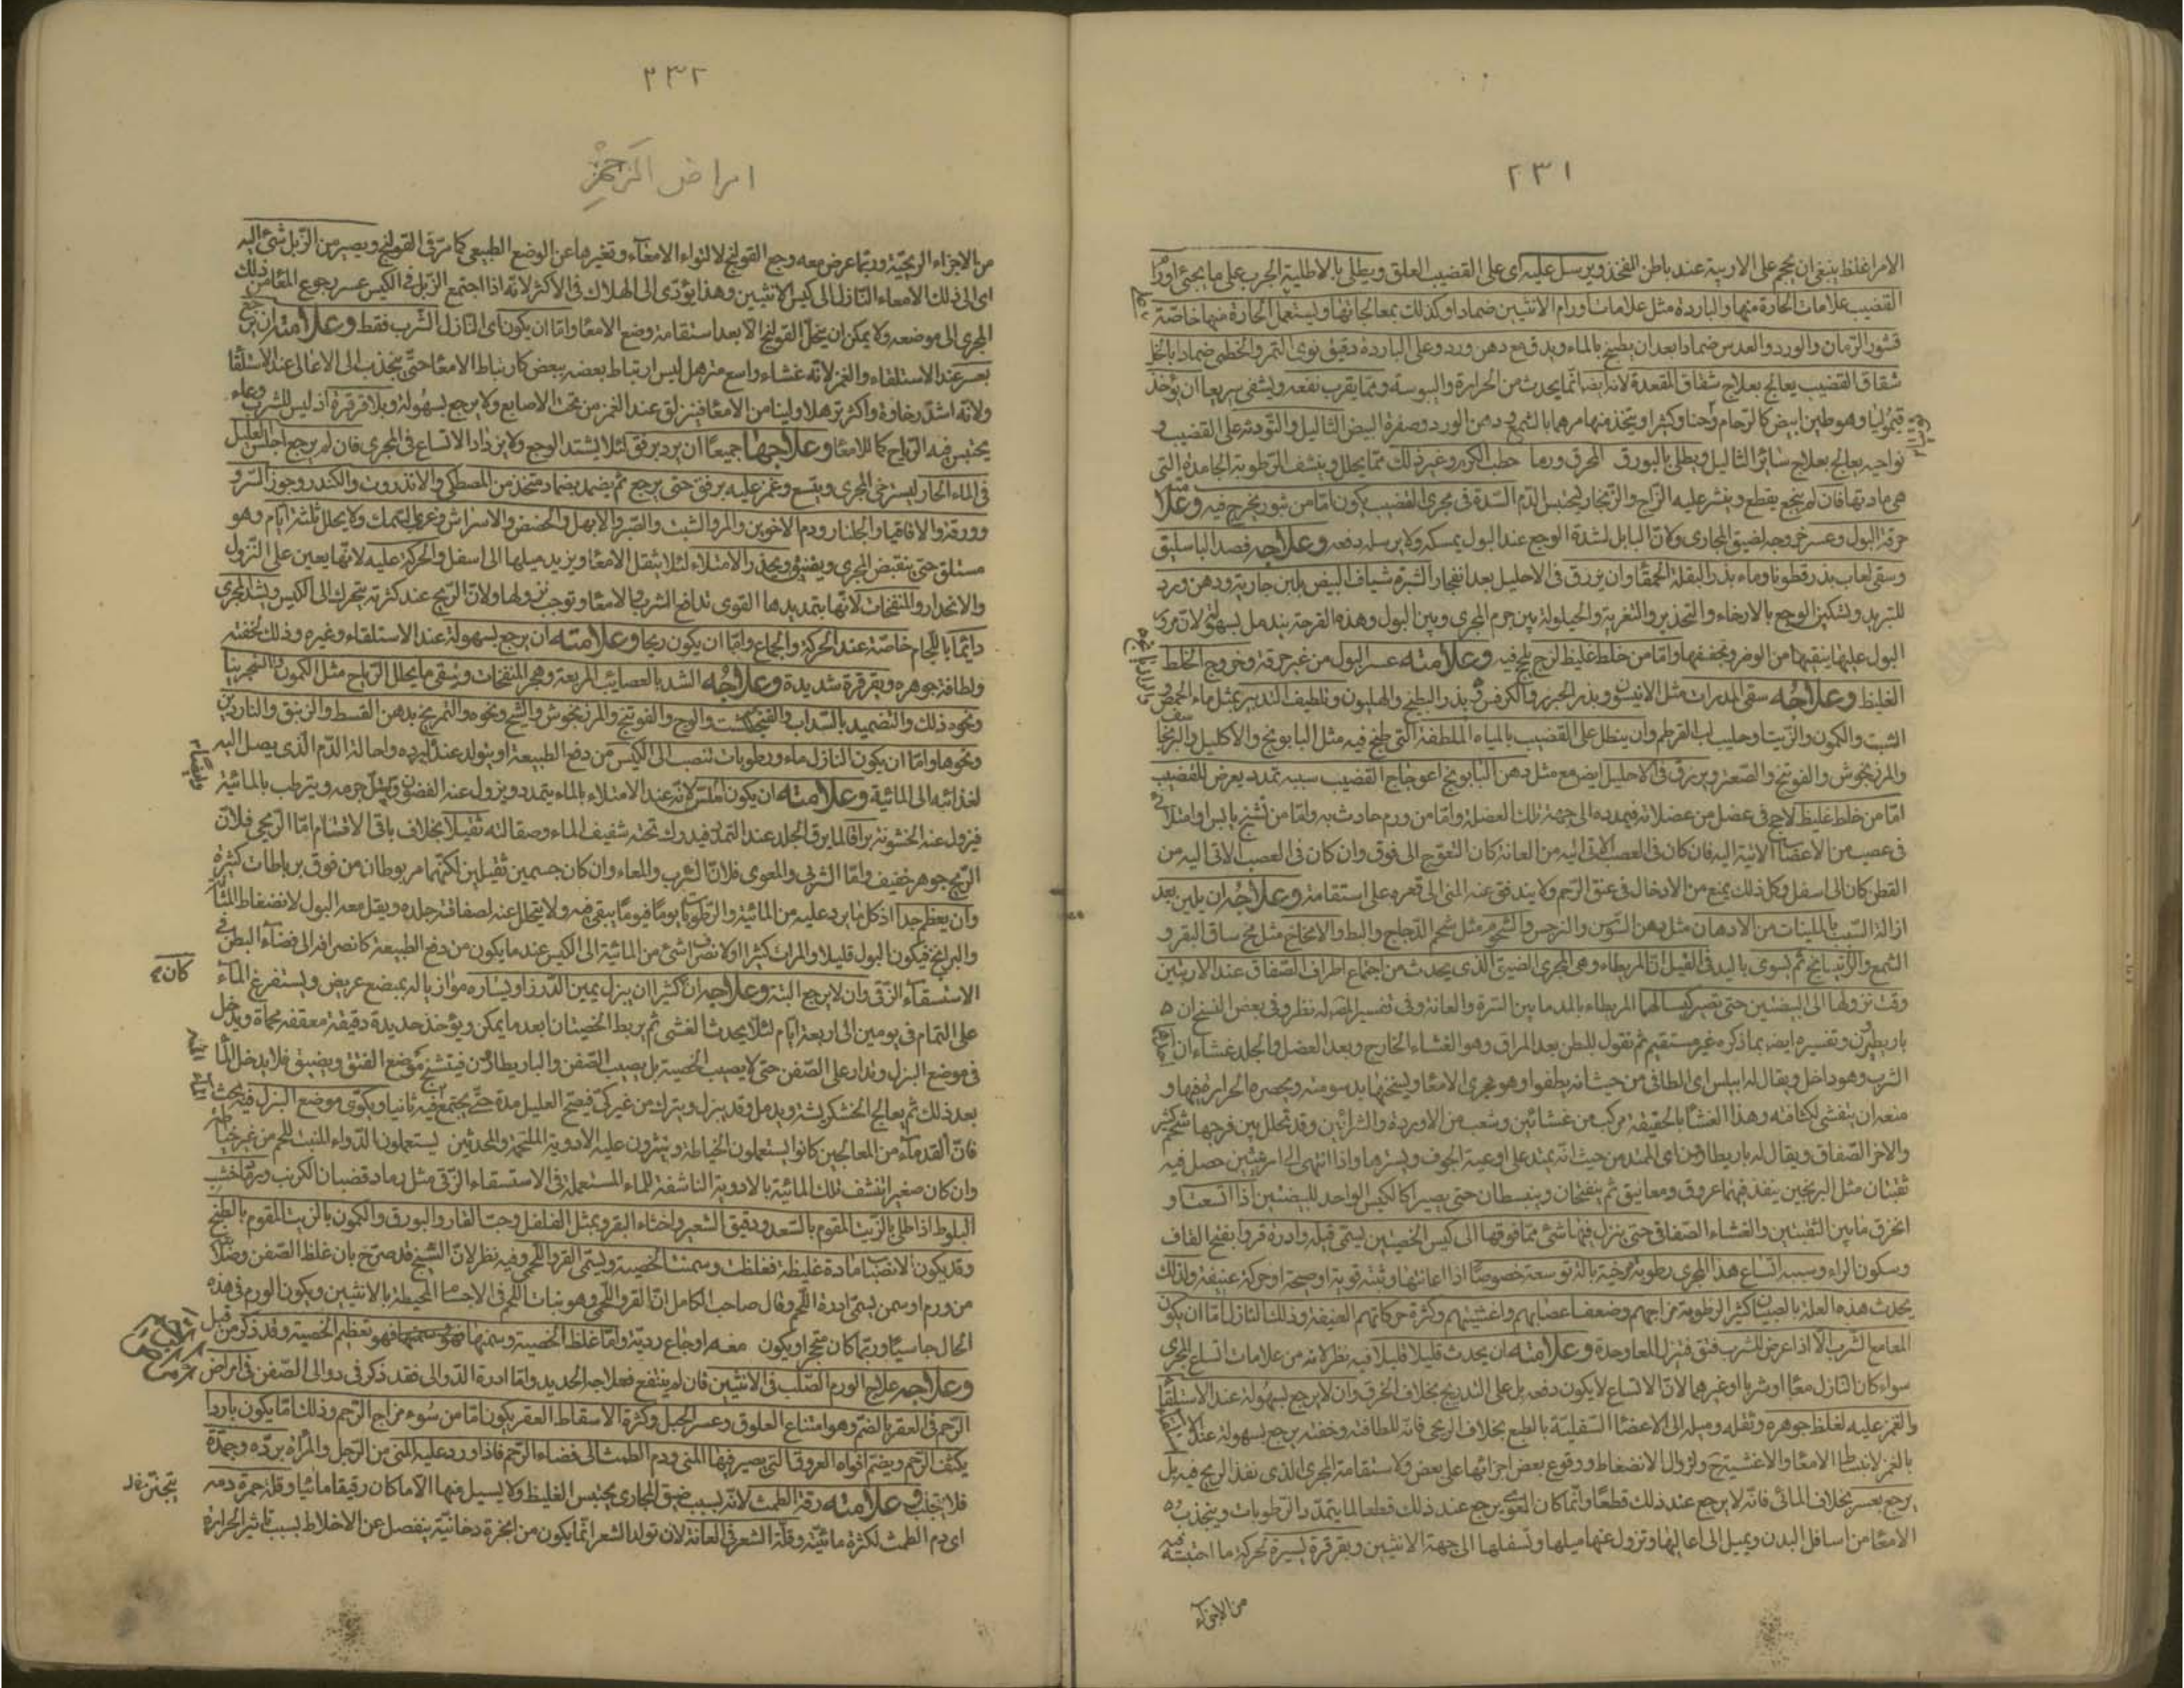 ٢٣١
الامر اغلظ ينبغي ان يحجم على الاربية عند باطن الفخذ ويرسل عليه اى على القضيب العلق ويطلى بالاطلية الجرب على ما يجئ اورام
القضيب علامات الحارة منها والباردة مثل علامات اورام الانثيين ضمادا وكذلك بمعالجاتها ويستعمل الحارة منها خاصّة
قشور الرّمان والورد والعدس ضمادا بعد ان يطبخ بالماء ويدق مع دهن ورد وعلى الباردة دقيق نوى التمر والخطمى ضمادا بالخل
شقاق القضيب يعالج بعلاج شقاق المقعدة لانه ايضا انّما يحدث من الحرارة واليبوسة وممّا يقرب نفعه ويشفى سريعا ان يؤخذ
قيموليا وهو طين ابيض كالرّخام وحنا وكثيرا ويتخذ منها مرهما بالشمع ودهن الورد وصفرة البيض الثاليل والتّوثه على القضيب و
نواحيه يعالج بعلاج سائر الثاليل ويطلى بالبورق المحرق ورماد حطب الكرم وغير ذلك ممّا يحلل وينشف الرّطوبة الجامدة التى
هى مادتها فان لم ينجع يقطع وينثر عليه الزّاج والزّنجار ليحتبس الدّم السّدة فى مجرى القضيب يكون امّا من بثور يخرج فيه وعلامته
حرقة البول وعسر خروجه لضيق المجارى ولانّ البابل لشدة الوجع عند البول يمسكه ولا يرسله دفعه وعلاجه فصد الباسليق
وسقى لعاب بذر قطونا وماء بذر البقلة الحمقا وان يزرق فى الاحليل بعد انفجار البثرة شياف البيض بلبن جارية ودهن ورد
للتبريد ولتسكين الوجع بالارخاء والتخدير والتغرية والحيلولة بين جرم المجرى وبين البول وهذه القرحة يندمل بسهولة لانّ مرور
البول عليها ينقيها من الوضر ويجففها وامّا من خلط غليظ لزج يلج فيه وعلامته عسر البول من غير حرقة وخروج الخلط
الغليظ وعلاجه سقى المدرات مثل الانيسون وبذر الجزر والكرفس وبذر البطيخ والهليون وتلطيف التدبير بمثل ماء الحمص
الشبت والكمون والزّيت وحليب لب القرطم وان ينطل على القضيب بالمياه الملطفة التى طبخ فيه مثل البابونج والاكليل والبرنجاسف
والمرزنجوش والفوتنج والصّعتر ويزرق فى الاحليل ايضا مع مثل دهن البابونج اعوجاج القضيب سببه تمدد يعرض للقضيب
امّا من خلط غليظ لاحج فى عضل من عضلاته فيمدده الى جهة تلك العضلة وامّا من ورم حادث به وامّا من تشنج يابس او امتلائى
فى عصب من الاعصاب الاتية اليه فان كان فى العصب الاتى اليه من العانة كان التعوّج الى فوق وان كان فى العصب الاتى اليه من
القطن كان الى اسفل وكل ذلك يمنع من الادخال فى عنق الرّحم ولا يندفق عنه المنى الى قعره على استقامة وعلاجه ان يلين بعد
ازالة السّبب بالملينات من الادهان مثل دهن السّوسن والنرجس والشحوم مثل شحم الدّجاج والبط والامخاخ مثل مخ ساق البقر و
الشمع والراتينانج ثم يسوى باليد فى القيلة انّ المربطاء وهى المجرى الضيق الذى يحدث من اجتماع اطراف الصّفاق عند الاربيتين
وقت نزولها الى البيضتين حتى تصير كيسا لهما المربطاء بالمد ما بين السّرة والعانة وفى تفسير المصه له نظر وفى بعض النسخ ان
باريطون وتفسيره ايضه بما ذكره غير مستقيم ثم نقول للبطن بعد المراق وهو الغشاء الخارج وبعد العضل والجلد غشاءان
الثرب وهو داخل ويقال له ابيلس اى الطافى من حيث انه يطفو وهو مجرى الامعا ويسخنها بدسومته ويحصره الحرارة فيها و
منعه ان يتفشى لكثافه وهذا الغشا بالحقيقة مركب من غشائين وشعب من الاوردة والشرائين وقد تحلل بين فرجها شحم كثير
والاخر الصّفاق ويقال له باريطاون اى الممتد من حيث انّه يمتد على اوعية الجوف ويسترها واذا انتهى الى اربيتين حصل فيه
ثقبتان مثل البربخين ينفذ فيهما عروق ومعاليق ثم ينفتحان وينبسطان حتى يصيرا كالكيس الواحد للبيضتين اذا اتسعتا و
انخرق ما بين الثقبتين والغشاء الصّفاق حتى ينزل فيها شئ ممّا فوقها الى كيس الخصيتين يسمّى قيلة وادرة قروا بفتح القاف
وسكون الراء وسببه اتساع هذا المجرى رطوبة مرخية بالة توسعة خصوصا اذا اعانتها وثبة قوية او صيحة او حركة عنيفة ولذلك
يحدث هذه العلة بالصبيان كثيرا لرطوبة مزاجهم وضعف اعصابهم واغشيتهم وكثرة حركاتهم العنيفة وذلك النازل امّا ان يكون
المعا مع الثرب الّا اذا عرض للثرب فتق فنزل المعا وحدة وعلامته ان يحدث قليلا قليلا فيه نظر لانه من علامات اتساع المجرى
سواء كان النازل معا او ثربا او غيرهما لانّ الاتساع لا يكون دفعه بل على التدريج بخلاف الخرق وان لا يرجع بسهولة عند الاستلقا
والغمز عليه لغلظ جوهره وثقله وميله الى الاعضا السّفليّة بالطبع بخلاف الريحى فانّه للطافته وخفته يرجع بسهولة عند الاستلقا
بالغمز لانبساط الامعا والاغشية ح ولزوال الانضغاط ووقوع بعض اجزائها على بعض ولاستقامة المجرى الذى نفذ الريح فيه بل
يرجع بعسر بخلاف المائى فانّه لا يرجع عند ذلك قطعا وانّما كان المعوى يرجع عند ذلك قطعا لما يتمدد الرّطوبات وينجذب
الامعا من اسافل البدن ويميل الى اعاليها وتزول عنها ميلها وتسفلها الى جهة الانثيين وبقرقرة يسيرة لحركة ما احتبست فيه
من الاجزاء
٢٣٢
امراض الرحم
من الاجزاء الريحيّة وربّما عرض معه وجع القولنج لالتواء الامعآء وتغيرها عن الوضع الطبيعى كما مرّ فى القولنج ويصير من الزّبل شئ اليه
اى الى ذلك الامعاء النّازل الى كيس الانثيين وهذا يؤدى الى الهلاك فى الاكثر لانّه اذا اجتمع الزّبل فى الكيس عسر رجوع المعا من ذلك
المجرى الى موضعه ولا يمكن ان ينحلّ القولنج الا بعد استقامة وضع الامعا وامّا ان يكون اى النّازل الثّرب فقط وعلامته ان يرجع
بعسر عند الاستلقاء والغمز لانّه غشاء واسع مترهل ليس ارتباط بعضه ببعض كارتباط الامعا حتّى ينجذب الى الاعالى عند الاستلقا
ولانّه اشدّ رخاوة واكثر ترهلا ولينا من الامعا فينزلق عند الغمز من تحت الاصابع ولا يرجع بسهولة وبلا قرقرة اذ ليس للثرب وعاء
يحتبس فيه الرّياح كما للامعا وعلاجها جميعًا ان يرد برفق لئلا يشتد الوجع ولا يزداد الاتساع فى المجرى فان لم يرجع اجلس العليل
فى الماء الحار ليسترخى المجرى ويتسع وغمز عليه برفق حتى يرجع ثم يضمد بضماد متخذ من المصطكى والانذروت والكندر وجوز السّرو
وورقه والاقاقيا والجلنار ودم الاخوين والمر والشبت والصّبر والابهل والحضض والاسراش وغرى السّمك ولا يحلل ثلثة ايّام وهو
مستلق حتى ينقبض المجرى ويضيق ويحذر الامتلاء لئلا يثقل الامعا ويزيد ميلها الى اسفل والحركة عليه لانّها يعين على النّزول
والانحدار والمنفخات لانّها بتمديدها القوى تدافع الثرب والامعا وتوجب نزولها ولانّ الرّيح عند كثرته يتحرك الى الكيس ويشد المجرى
دائما باللّجام خاصّة عند الحركة والجماع وامّا ان يكون ريحا وعلامته ان يرجع بسهولة عند الاستلقاء وغيره وذلك لخفته
ولطافة جوهره وبقرقرة شديدة وعلاجه الشد بالعصائب المربعة وهجر المنفخات وسقى ما يحلل الرّياح مثل الكمون والسنجرينا
ونحو ذلك والتضميد بالسّداب والفنجنكشت والوج والفوتنج والمرزنجوش والشيح ونحوه والتمريخ بدهن القسط والزنبق والناردين
ونحوها وامّا ان يكون النازل ماء ورطوبات تنصب الى الكيس من دفع الطبيعة او يتولد عنده لبرده واحالة الدّم الّذى يصل اليه
لغذائه الى المائية وعلامته ان يكون املس لانّه عند الامتلاء بالماء يتمدد ويزول عنه الغضون ويبتلّ جرمه ويترطب بالمائية
فيزول عنه الخشونة براقا لما يرق الجلد عند التمدد فيدرك تحته شفيف الماء وصقالته ثقيلا بخلاف باقى الاقسام امّا الرّيحى فلانّ
الرّيح جوهر خفيف وامّا الثربى والمعوى فلانّ الثرب والمعاء وان كان جسمين ثقيلين لكنّهما مربوطان من فوق برباطات كثيرة
وان يعظم جدا اذ كل ما يرد عليه من المائية والرّطوبات يوما فيوما يبقى فيه ولا يتحلل عنه لصفاقة جلده ويقل معه البول لانضغاط المثانة
والبرابخ فيكون البول قليلا والمرات كثيرا اولانصراف شئ من المائية الى الكيس عند ما يكون من دفع الطبيعة كانصرافه الى فضآء البطن فى
الاستسقآء الزقى وان لا يرجع البتة وعلاجه ان كان كثيرا ان يبزل يمين الدّرز او يساره موازيا له بمبضع عريض ويستفرغ المآء
على التمام فى يومين الى اربعة ايّام لئلا يحدث الغشى ثم يربط الخصيتان ابعد ما يمكن ويؤخذ حديدة دقيقة معقفه محماة ويدخل
فى موضع البزل وتدار على الصّفن حتى لا يصيب الخصية بل يصيب الصّفن والباريطاون فيتشنج موضع الفتق ويضيق فلا يدخل المآء
بعد ذلك ثم يعالج الخشكريشة ويدمل وقد يبزل ويترك من غير كى فيصح العليل مدة حتّى يجتمع فيه ثانيا ويكوّى موضع البزل فيه بحث
فانّ القدمآء من المعالجين كانوا يستعملون الخياطة وينثرون عليه الادوية الملحمة والمحدثين يستعملون الدّواء المنبت للّحم من غير خياطة
وان كان صغيرا ينشف تلك المائية بالادوية الناشفة للماء المستعملة فى الاستسقاء الزّقى مثل رماد قضبان الكرنب ورماد خشب
البلوط اذا طلى بالزّيت المقوم بالسّعد ودقيق الشعير واخثاء البقر وبمثل الفلفل وحبّ الغار والبورق والكمون بالزيت المقوم بالطبخ
وقد يكون الانصباب مادة غليظة فغلظت وسمنت الخصية ويسمّى القرو اللّحمى وفيه نظر لانّ الشيخ قد صرّح بان غلظ الصّفن وصلابته
من ورم او سمن يسمّى ادرة اللّحم وقال صاحب الكامل انّ القرو اللّحمى هو نبات اللّحم فى الاجسام المحيطة بالانثيين ويكون الورم فى هذه
الحال جاسيًا وربّما كان متحجرا ويكون معه اوجاع ردية وامّا غلظ الخصية وسمنها فهو تعظيم الخصية وقد ذكر من قبل
وعلاجه علاج الورم الصّلب فى الانثيين فان لم ينتفع فعلاجه الحديد وامّا ادرة الدّوالى فقد ذكر فى دوالى الصّفن فى امراض
الرّحم فى العقر بالضم وهو امتناع العلوق وعسر الحبل وكثرة الاسقاط العقر يكون امّا من سُوء مزاج الرّحم وذلك امّا يكون باردا
يكثف الرّحم ويضم افواه العروق التى يصير فيها المنى ودم الطمث الى فضاء الرّحم فاذا ورد عليه المنى من الرّجل والمرأة برّده وجمّده
فلا ينجذب وعلامته رقة الطمث لانّه بسبب ضيق المجارى يحتبس الغليظ ولا يسيل منها الا ما كان رقيقا مائيا وقلة حمرة دمه
اى دم الطمث لكثرة مائيّته وقلّة الشعر فى العانة لان تولد الشعر انّما يكون من ابخرة دخانيّة ينفصل عن الاخلاط بسبب تاثير الحرارة
كان